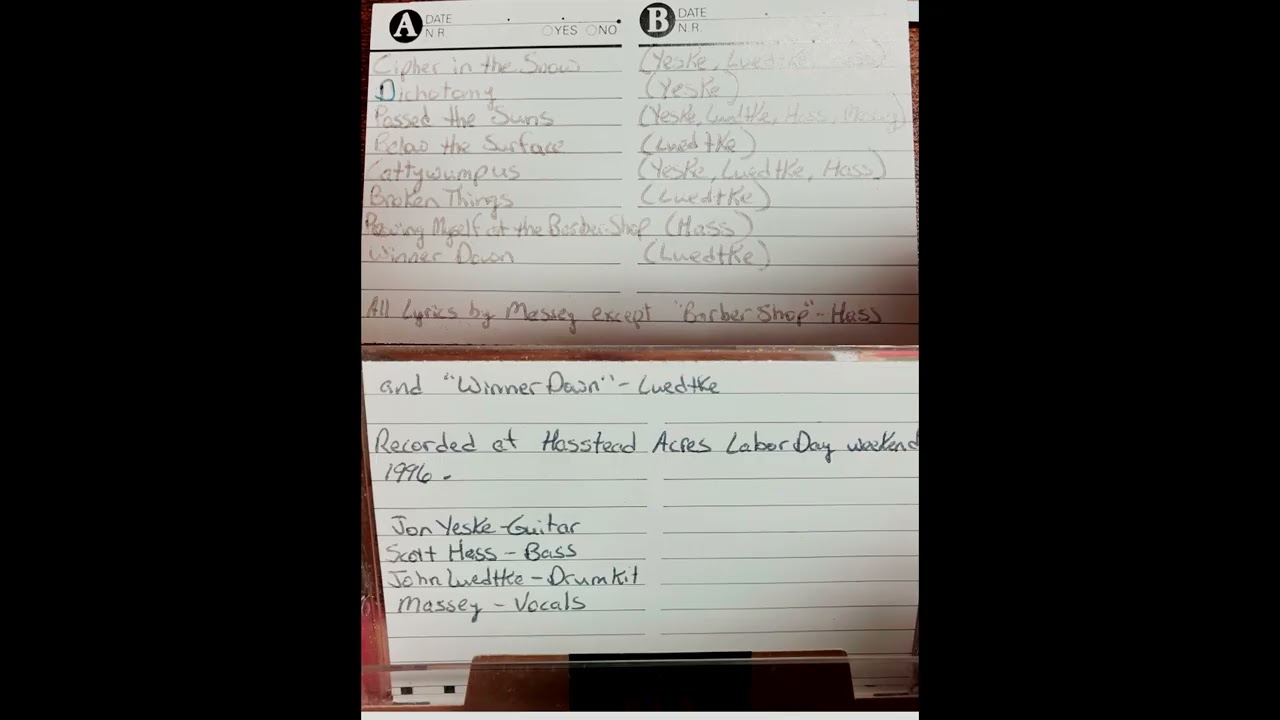 A DATE B DATE
N.R. YES NO N.R.
Cipher in the Snow (Yeske, Luedtke, Hass)
Dichotomy (Yeske)
Passed the Suns (Yeske, Luedtke, Hass, Massey)
Below the Surface (Luedtke)
Cattywumpus (Yeske, Luedtke, Hass)
Broken Things (Luedtke)
Myself at the Barber Shop (Hass)
Winner Down (Luedtke)
All Lyrics by Massey except "Barber Shop" - Hass
and "Winner Down" - Luedtke
Recorded at Hasstead Acres Labor Day weekend
1996.
Jon Yeske - Guitar
Scott Hass - Bass
John Luedtke - Drumkit
Massey - Vocals